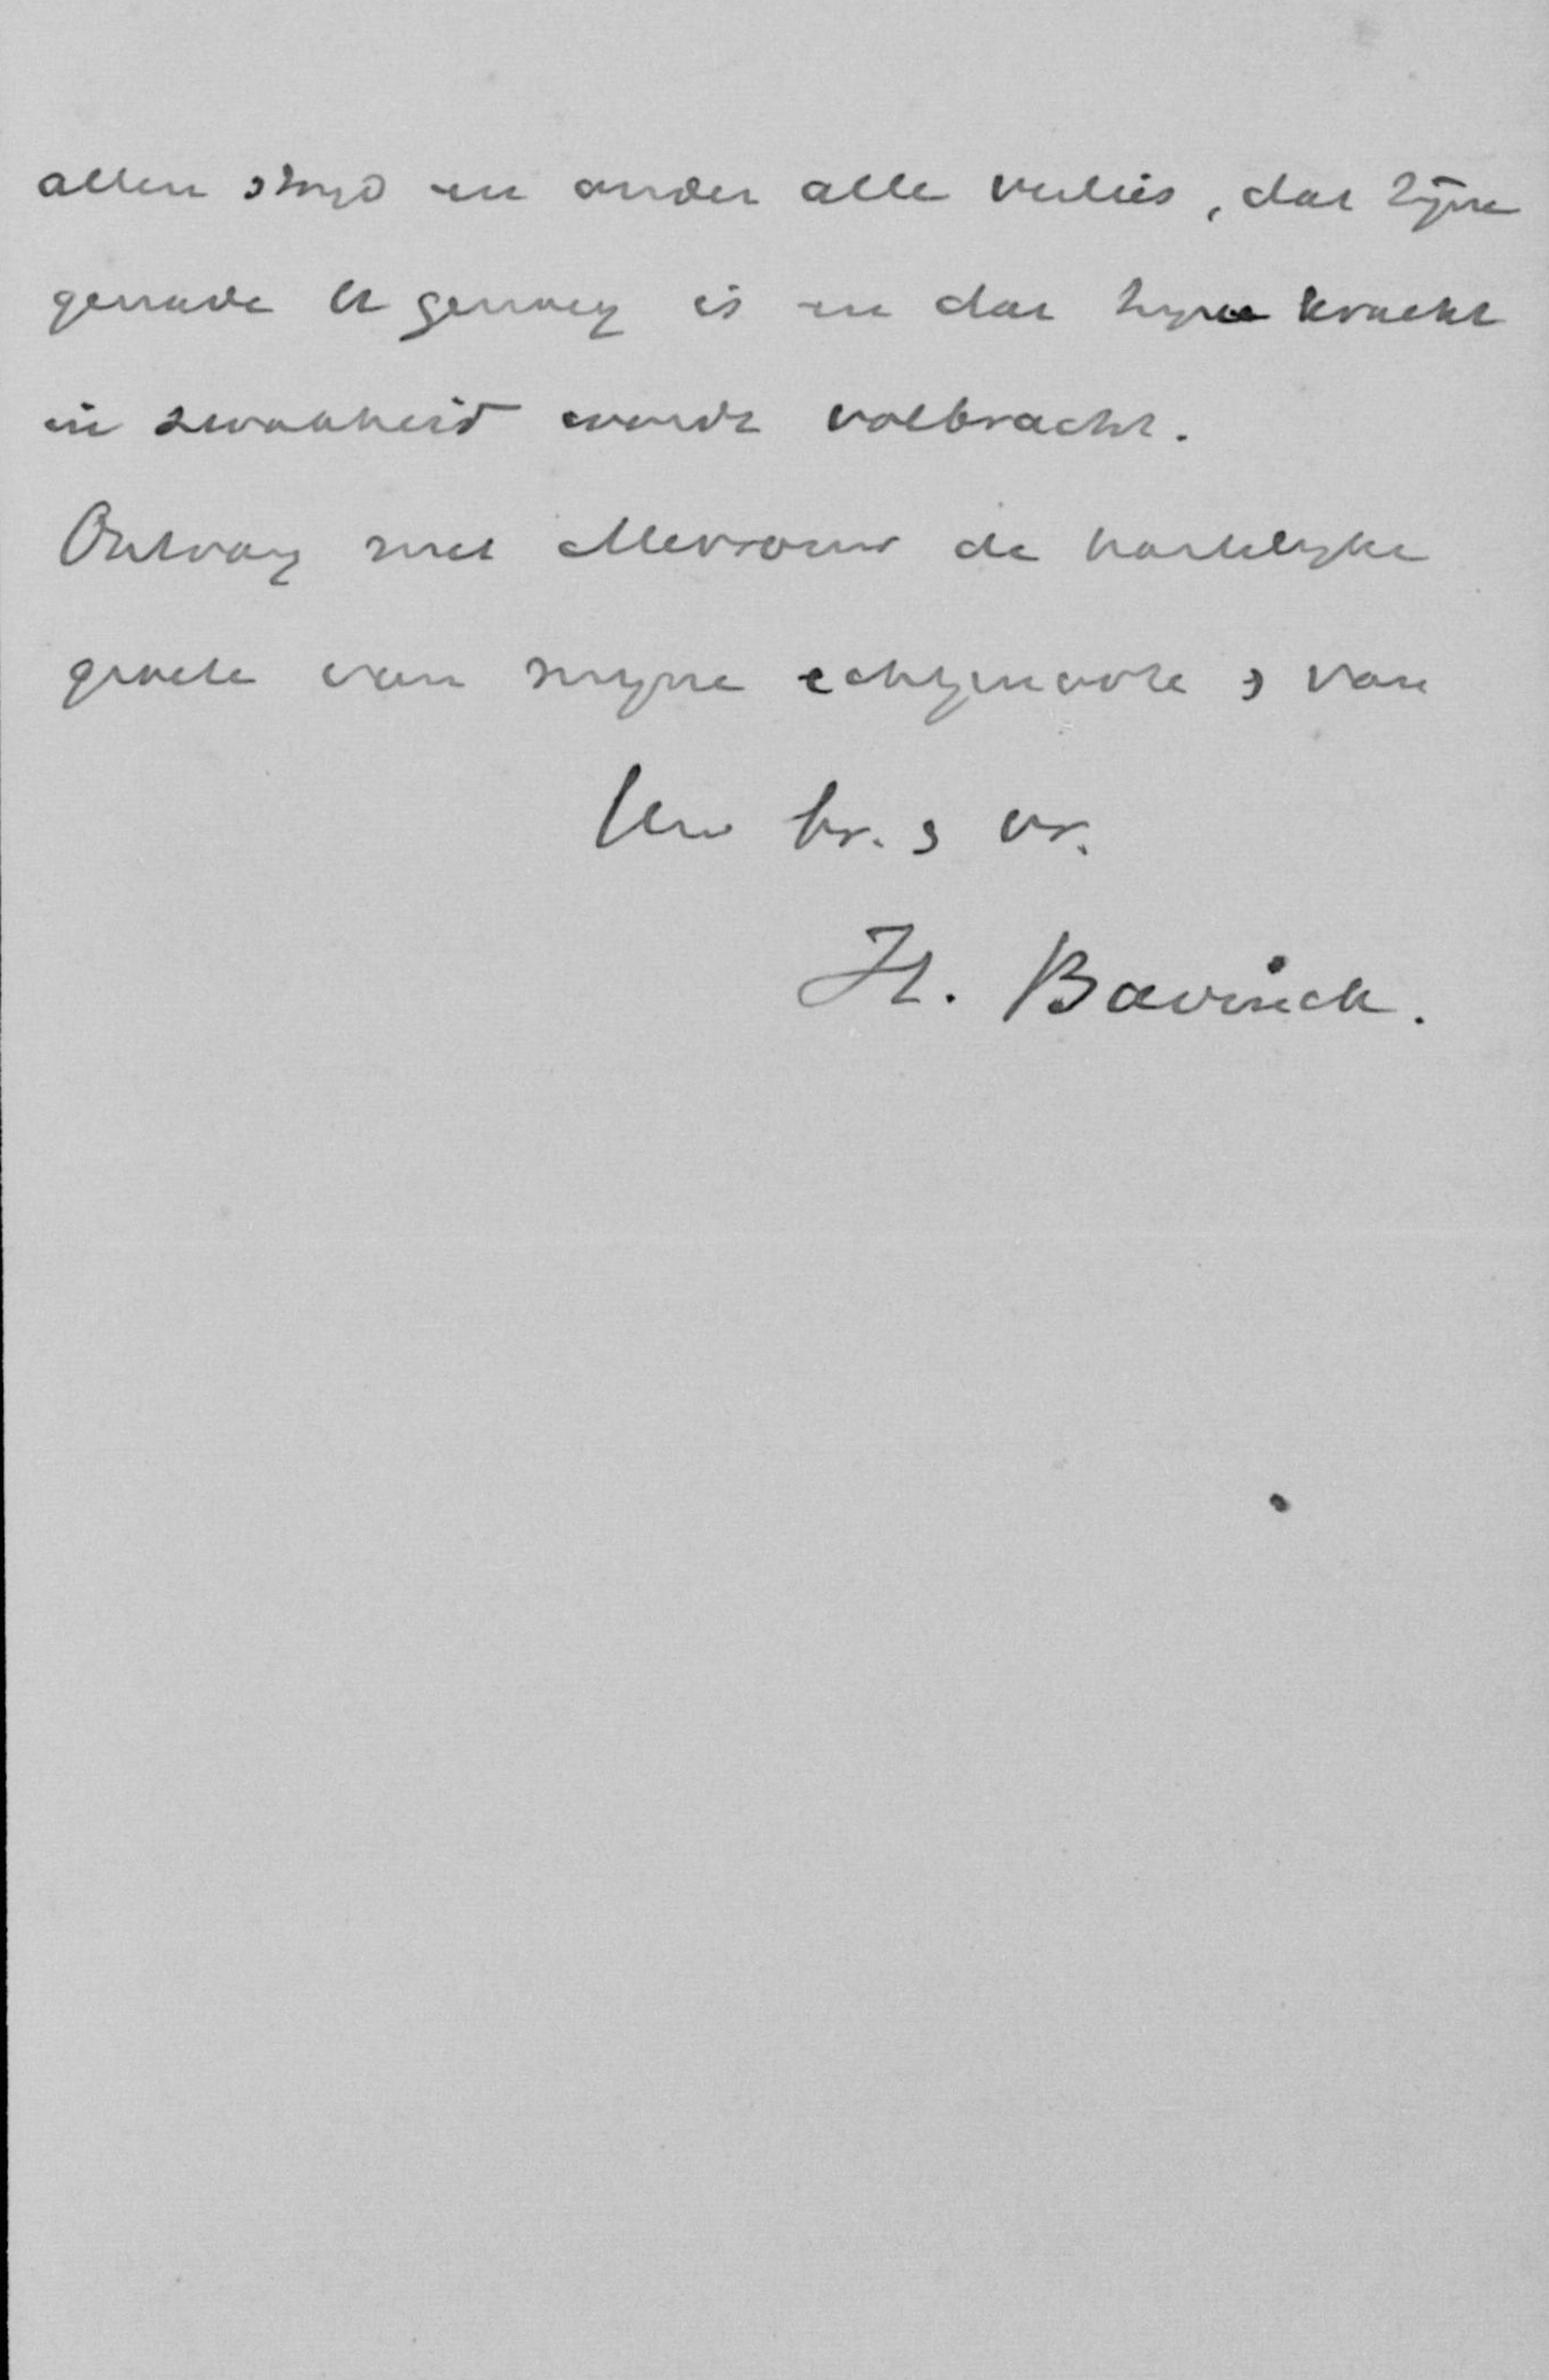 allen strijd en onder alle verlies, dat Zijne
genade U genoeg is en dat Zijne kracht
in zwakheid wordt volbracht.
Ontvang met Mevrouw de hartelijke
groete van mijne echtgenoote & van
Uw br. & vr.
H. Bavinck.